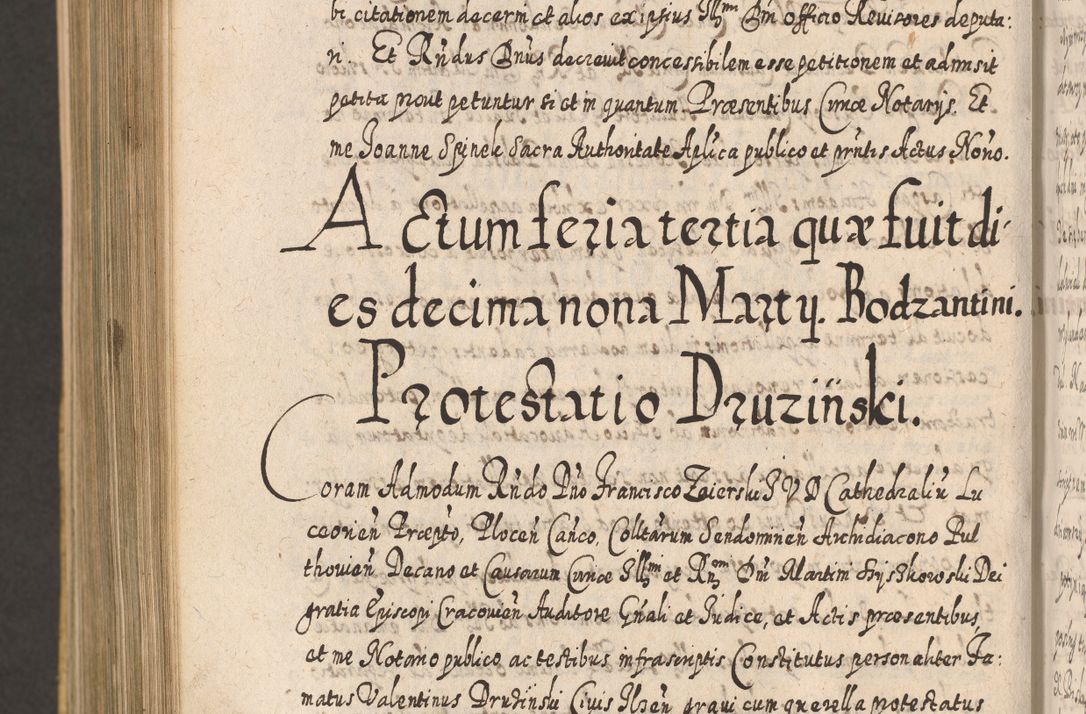 bi citationem decerni et alios ex ipsius Illmi Dni officio Revisores deputa:
ri. Et Rndus Dnus decrevit concessibilem esse petitionem et admisit
petita prout petuntur si et in quantum. Præsentibus Curiæ Notarijs. Et
me Joanne Spinek Sacra Authoritate Aplica publico et prntis Actus Norio.
Actum feria tertia quæ fuit di-
es decima nona Martij. Bodzantini.
Protestatio Druziński.
Coram Admodum Rndo Dno Francisco Zaierski I V D Cathedraliu Lu
ceorien Præpto, Plocen Canco, Colltarum Sendomirien Archidiacono Pul
thovien Decano et Causarum Curiæ Illmi et Rmi Dni Martini Szyszkowski Dei
gratia Episcopi Cracovien Auditore Gnali et Judice, et Actis præsentibus,
et me Notario publico, ac testibus infrascriptis Constitutus personaliter Fa:
matus Valentinus Druziński Civis gravi cum querella protestatus